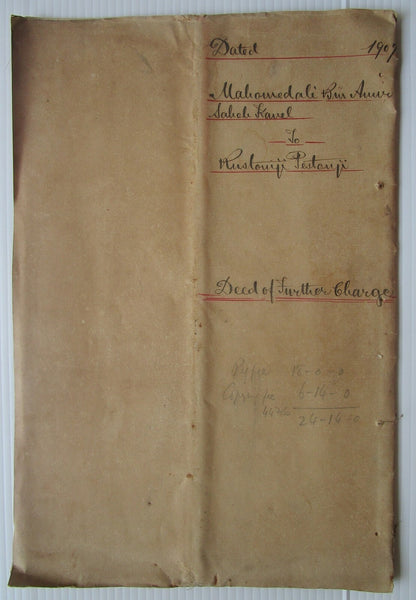 Dated 1907
Mahomedali Bin Amir
Saheb
To
Rustomji Pestonji
Deed of Further Charge
18-0-0
6-14-0
24-14-0